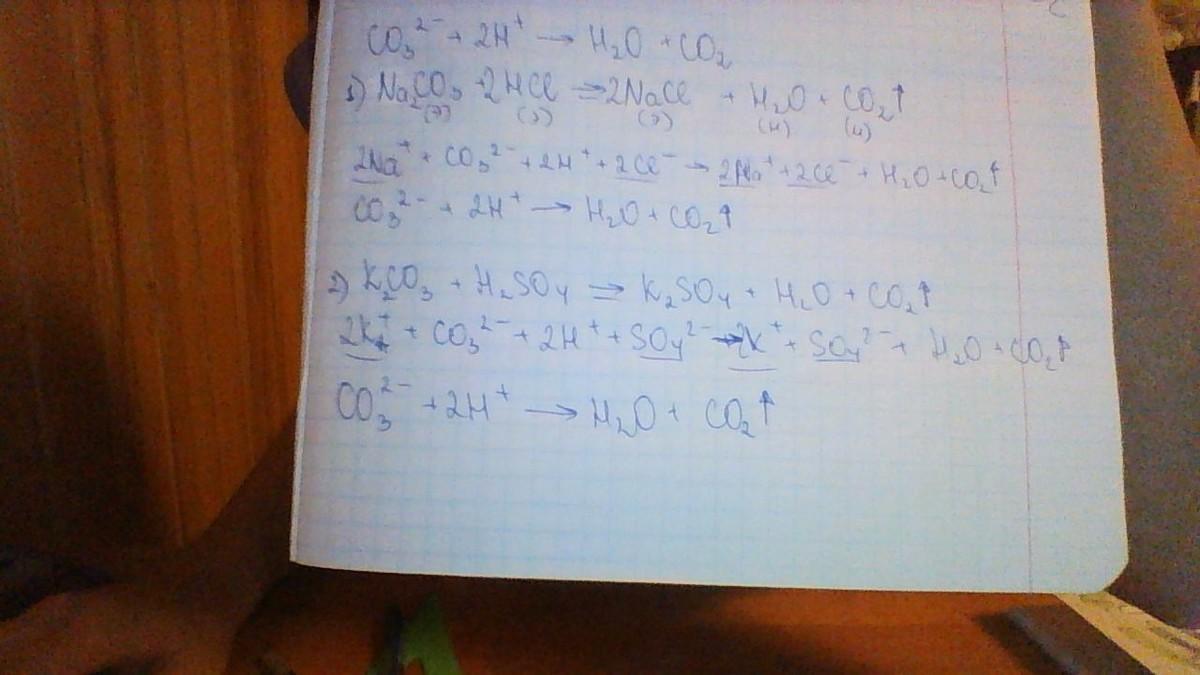 CO₃²⁻ + 2H⁺ → H₂O + CO₂
1) Na₂CO₃ + 2HCl ⇒ 2NaCl + H₂O + CO₂↑
(р) (р) (р) (н) (н)
2Na⁺ + CO₃²⁻ + 2H⁺ + 2Cl⁻ → 2Na⁺ + 2Cl⁻ + H₂O + CO₂↑
CO₃²⁻ + 2H⁺ → H₂O + CO₂↑
2) K₂CO₃ + H₂SO₄ ⇒ K₂SO₄ + H₂O + CO₂↑
2K⁺ + CO₃²⁻ + 2H⁺ + SO₄²⁻ → 2K⁺ + SO₄²⁻ + H₂O + CO₂↑
CO₃²⁻ + 2H⁺ → H₂O + CO₂↑